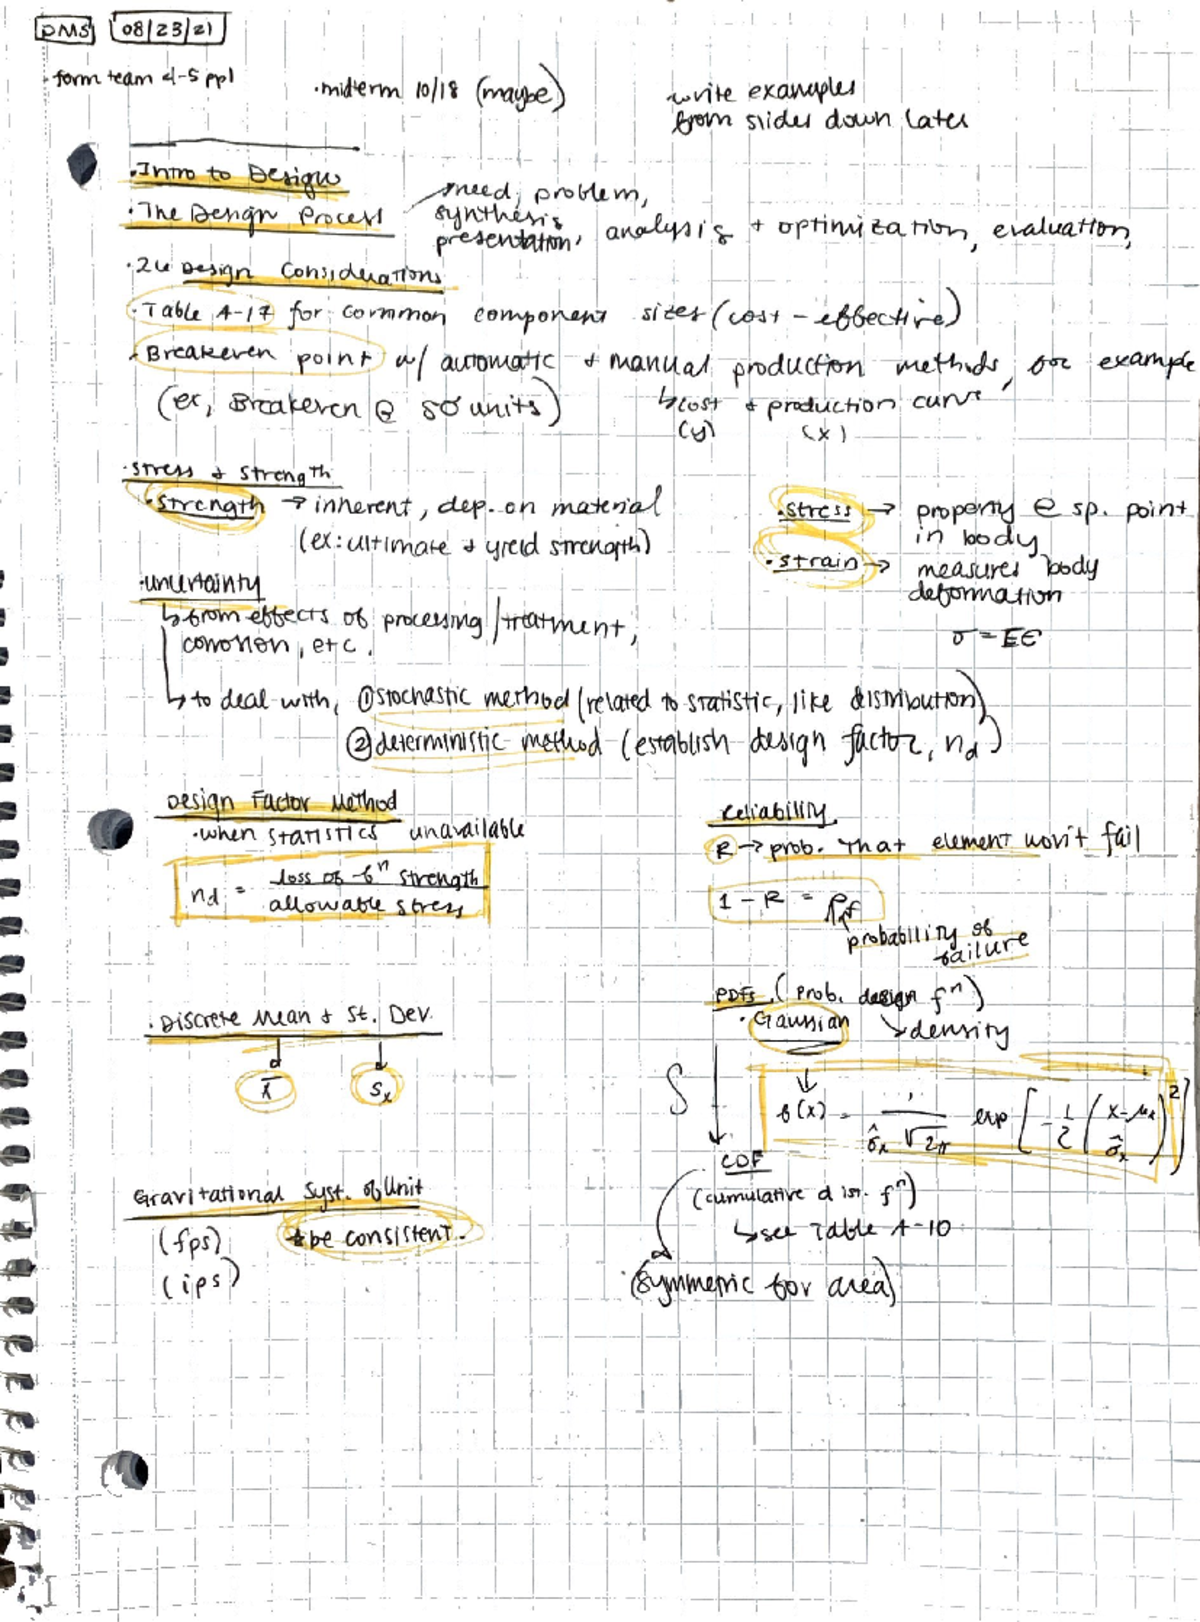 DMS 08/23/21
· form team 4-5 ppl
· midterm 10/18 (maybe)
write examples
from slides down later
· Intro to Design
· The Design Process
need, problem,
synthesis, analysis + optimization, evaluation,
presentation
· 26 Design Considerations
· Table A-17 for common component sizes (cost-effective)
· Breakeven point w/ automatic + manual production methods, for example
(ex, Breakeven @ 50 units)
↳ cost + production curve
(y) (x)
· stress + strength
· strength → inherent, dep. on material
(ex: ultimate + yield strength)
· stress → property @ sp. point
in body
· strain → measures body
deformation
σ = Eϵ
· uncertainty
↳ from effects of processing/treatment,
corrosion, etc.
↳ to deal with, ① stochastic method (related to statistic, like distribution)
② deterministic method (establish design factor, nd)
Design Factor Method
· when statistics unavailable
nd = loss of fⁿ strength
allowable stress
Reliability
R → prob. that element won't fail
1 - R = Pf
probability of
failure
· Discrete Mean + St. Dev.
x̄ Sx
PDFs (prob. design fⁿ)
· Gaussian ↘ density
∫ f(x) = 1 / σ̂x √2π exp [-1/2 (x-μx / σ̂x)²]
CDF
(cumulative dist. fⁿ)
↳ see Table A-10
(symmetric for area)
Gravitational Syst. of Unit
(fps) * be consistent.
(ips)